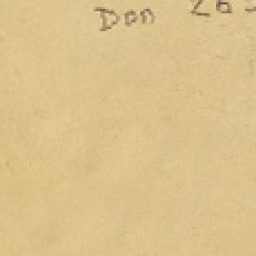 Don 26